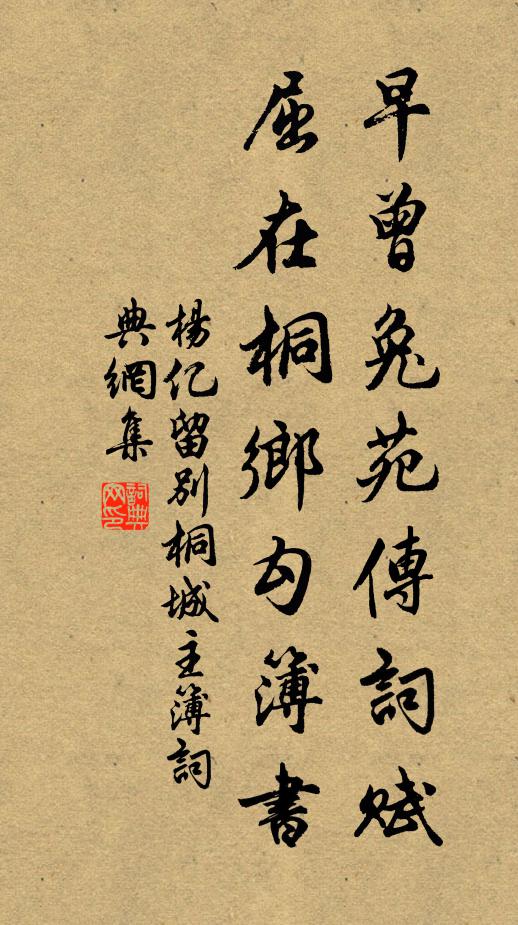 早曾兔苑傳詞賦
屈在桐鄉勾簿書
楊億留別桐城主簿詞
典網集
詞典网印